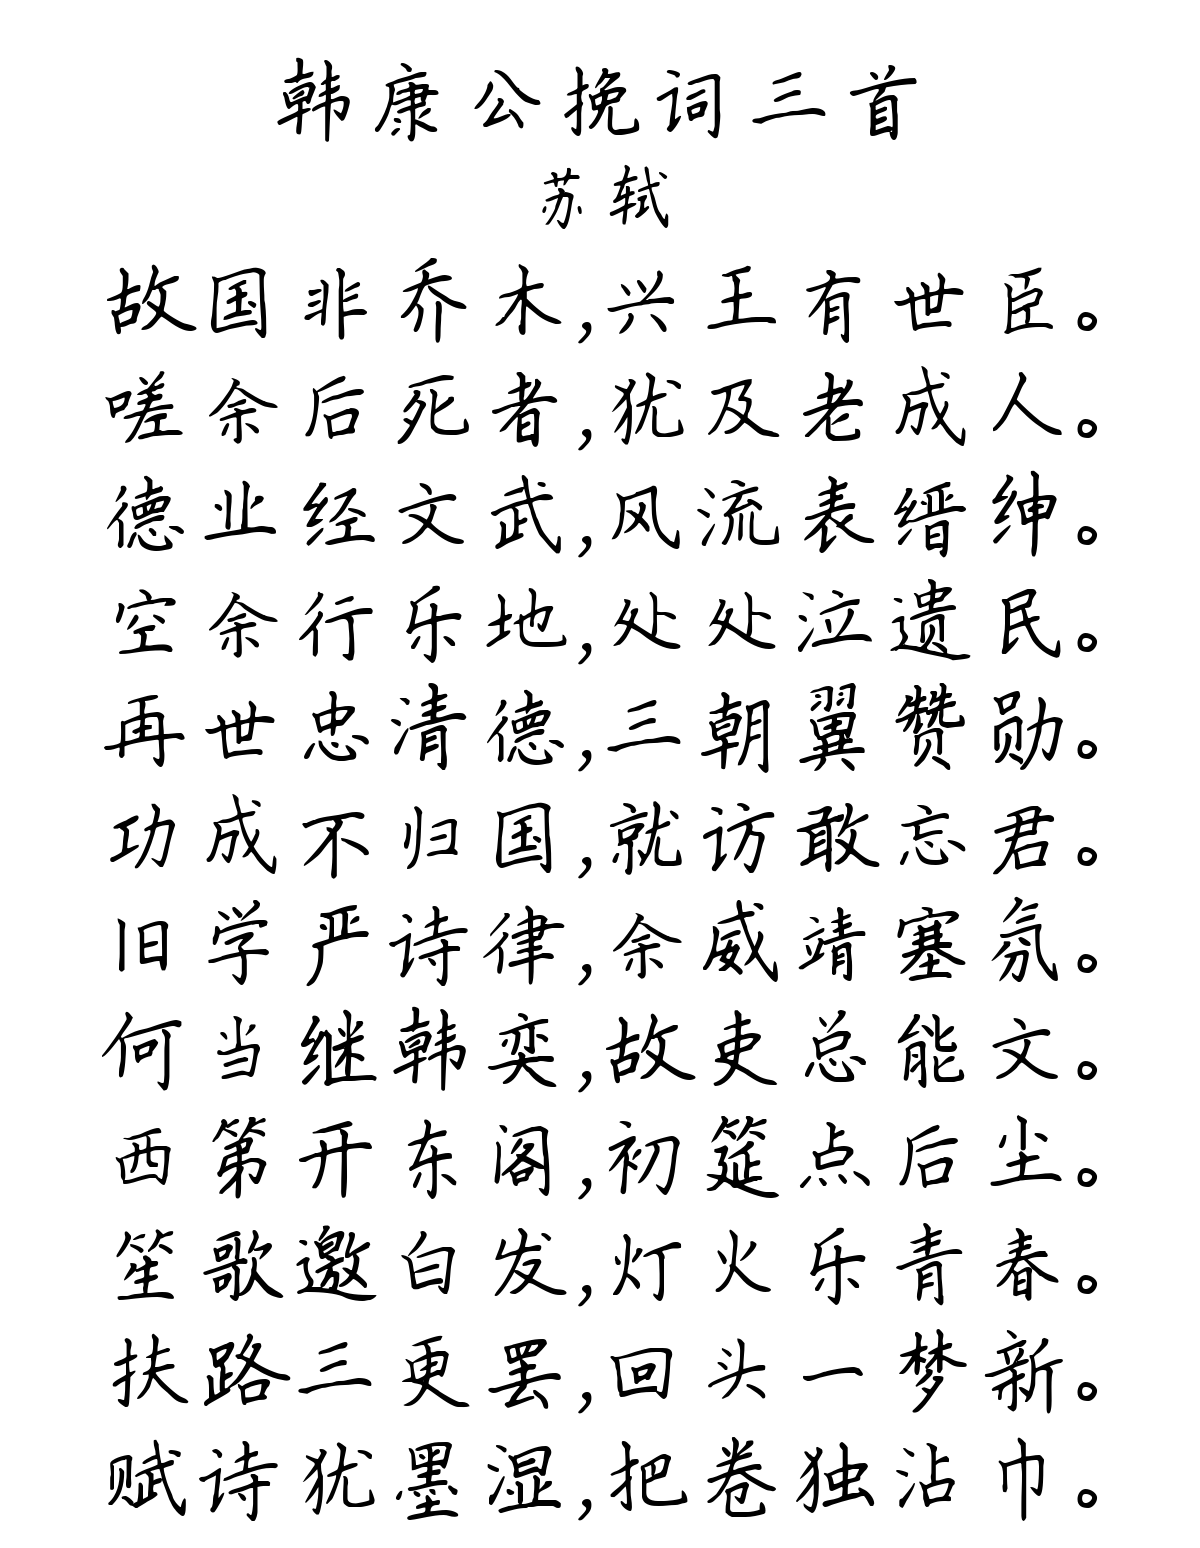 韩康公挽词三首
苏轼
故国非乔木,兴王有世臣。
嗟余后死者,犹及老成人。
德业经文武,风流表缙绅。
空余行乐地,处处泣遗民。
再世忠清德,三朝翼赞勋。
功成不归国,就访敢忘君。
旧学严诗律,余威靖塞氛。
何当继韩奕,故吏总能文。
西第开东阁,初筵点后尘。
笙歌邀白发,灯火乐青春。
扶路三更罢,回头一梦新。
赋诗犹墨湿,把卷独沾巾。